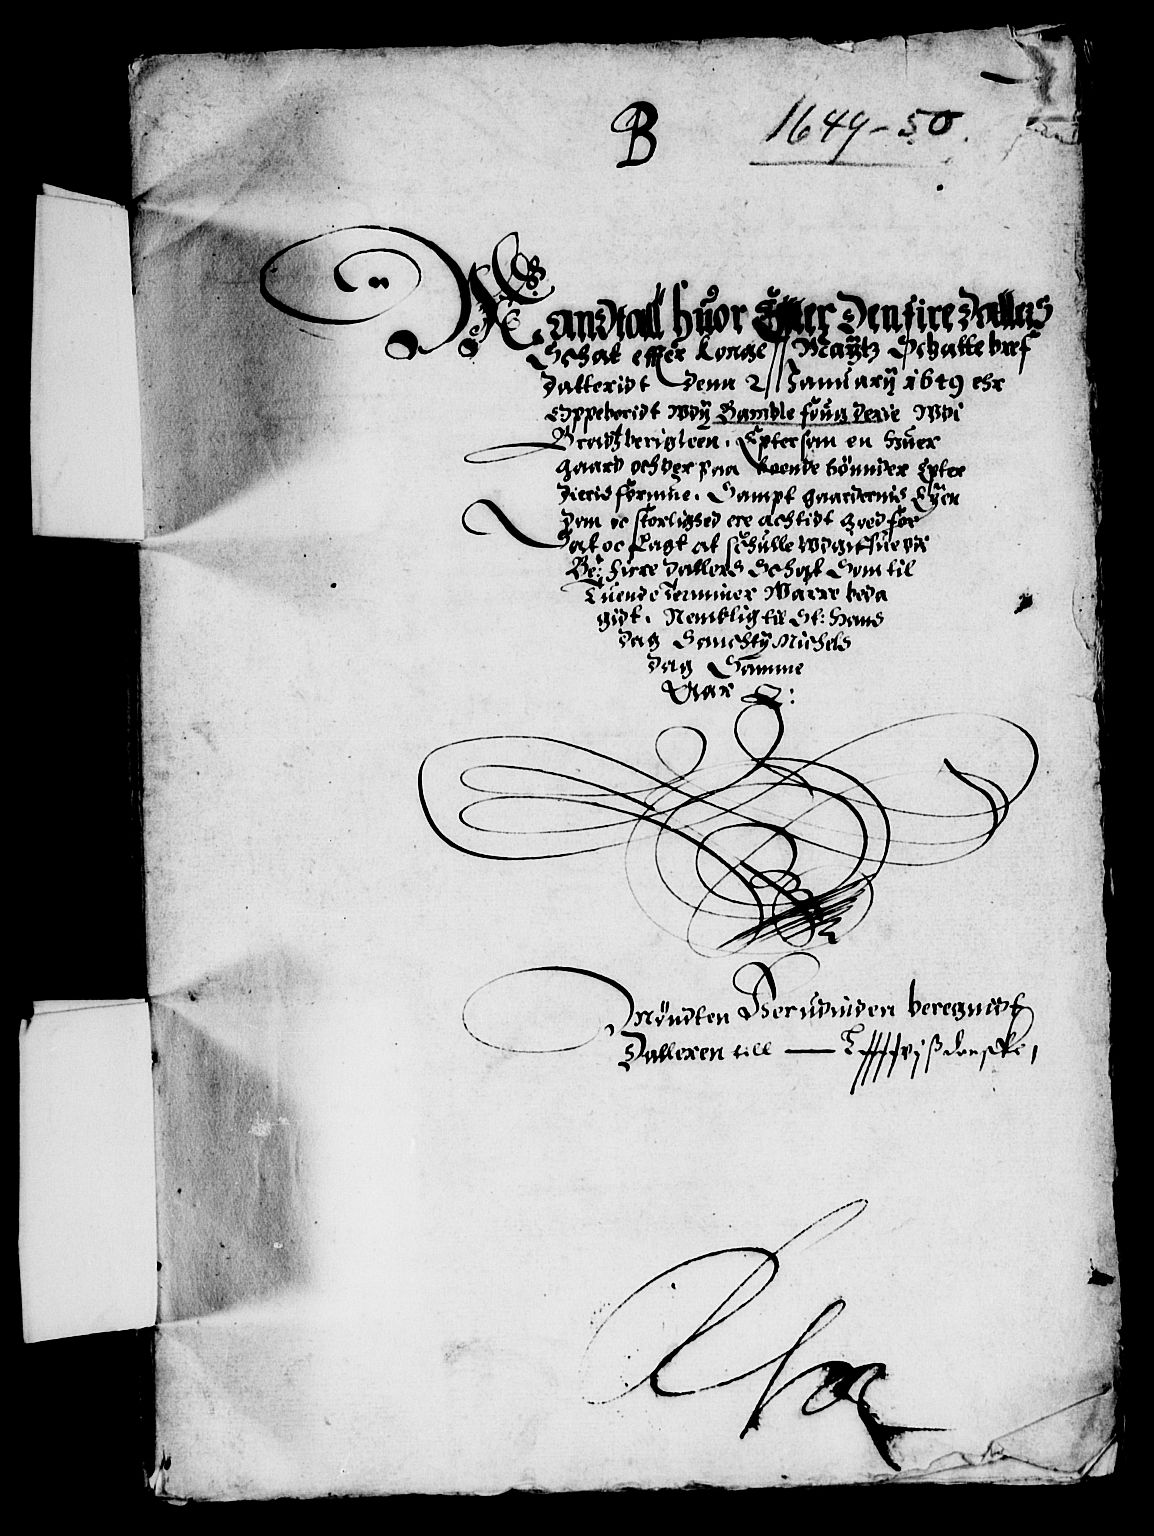 B
1649-50.
Mandtall huor Effter den fire Dallers
Schat effter Konge Maÿtz Schatte bref
Datteridt denn 2 Januarÿ 1649 ehr
Oppeboridt wdÿ Bamble foug derie wdi
Bradtzberigleen. Epter som en huer
gaard och der paa boende bönnder Epter
dieris formue. Sampt gaardernis Eÿen
dom oc storlighed ere achtidt goed for
at oc lagt at schulle wdgiffue
Be: firre dallers Schat Som til
Tuende Terminer Warre beda
gidt. Nemblig til St: Hans
dag Sancti Michels
dag Samme
Aar
Möndten Herudinden beregnidt
Dalleren till — danske